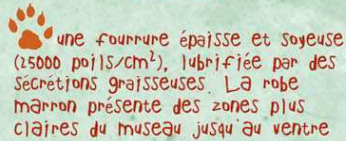 une fourrure épaisse et soyeuse
(25000 poils/cm²), lubrifiée par des
sécrétions graisseuses. La robe
marron présente des zones plus
claires du museau jusqu'au ventre